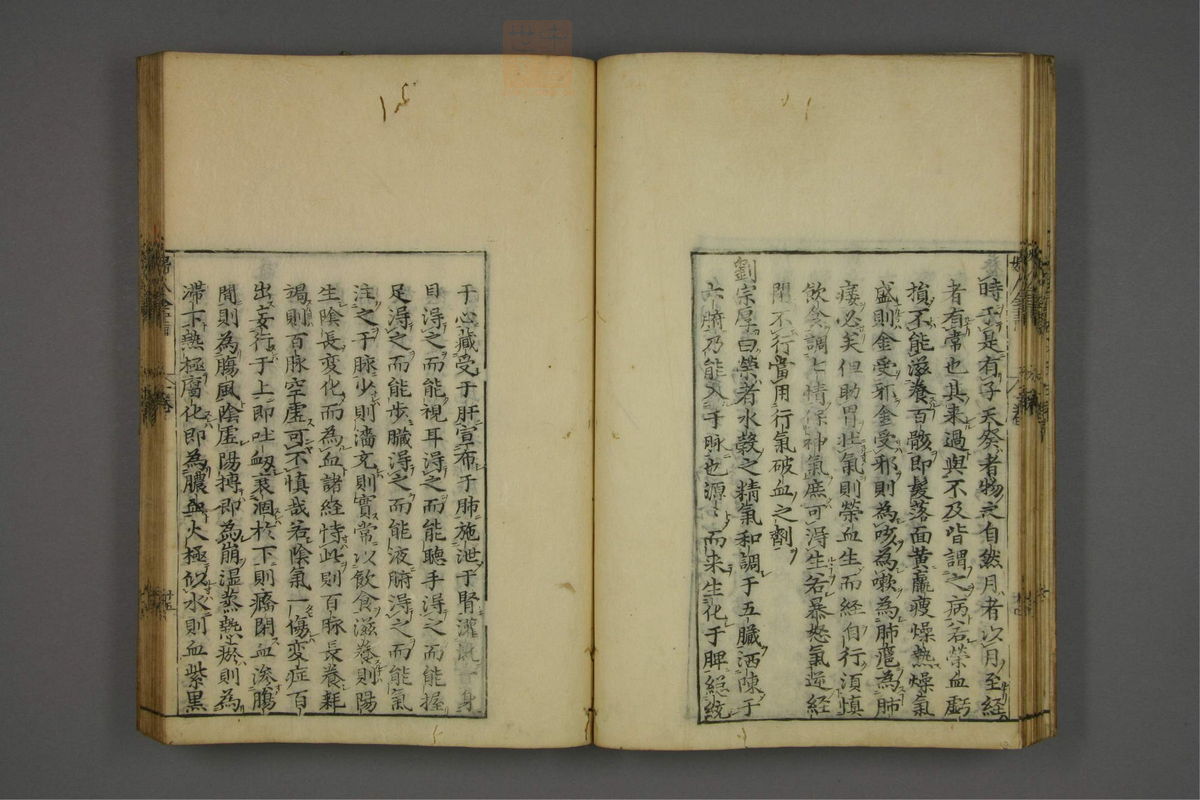 時于是有子天癸者物之自然月者以月至経
者有常也其来過與不及皆謂之病若榮血虧
損不能滋養百骸即髮落面黄羸瘦燥熱燥氣
盛則金受邪金受邪則為咳為嗽為肺癰為肺
痿必矣但助胃壮氣則榮血生而経自行須慎
飲食調七情保神氣庶可淂生若暴怒氣逆経
閉不行當用行氣破血之劑
劉宗厚曰榮者水穀之精氣和調于五臟洒陳于
六腑乃能入于脉也源〻而来生化于脾総統
于心藏受于肝宣布于肺施泄于腎灌漑一身
目淂之而能視耳淂之而能聴手淂之而能握
足淂之而能歩臟淂之而能液腑淂之而能氣
注之于脉少則濇充則實常以飲食滋養則陽
生陰長変化而為血諸経恃此則百脉長養耗
竭則百脉空虚可不慎哉若陰氣一傷変症百
出妄行于上即吐衂衰涸於下則癆閉血滲膓
間則為膓風陰虚陽搏即為崩湿蒸熱瘀則為
滞下熱極腐化即為膿血火極似水則血紫黒